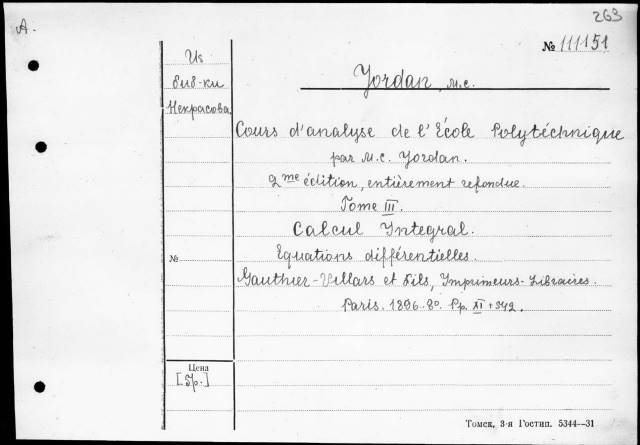 A.
263
№ 111151
Из
биб-ки
Некрасова.
Jordan, M.C.
Cours d'analyse de l'École Polytéchnique
par M.C. Jordan.
2me édition, entièrement refondue.
Tome III.
Calcul Integral.
Equations différentielles.
Gauthier-Villars et Fils, Imprimeurs-Libraires.
Paris. 1896. 8º. Pp. XI + 542.
№
Цена
Томск, 3-я Гостип. 5344—31